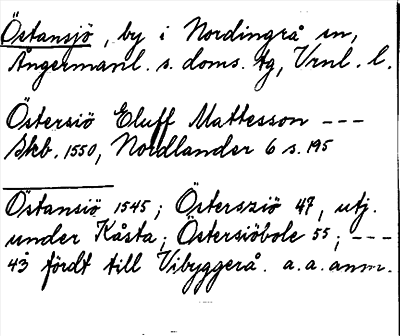 Östansjö, by i Nordingrå sn,
Ångermanl. s. doms. tg, Vrnl. l.
Östersiö Eluff Mattesson ---
Skb. 1550, Nordlander 6 s. 195
Östansiö 1545; Östersziö 47, utj.
under Kåsta; Östersiöbole 55; ---
43 fördt till Vibyggerå. a. a. anm.